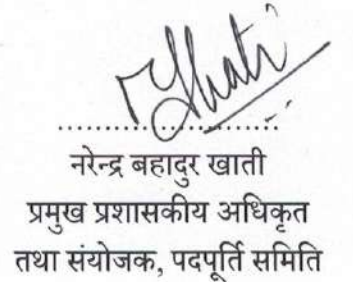 ..............................
नरेन्द्र बहादुर खाती
प्रमुख प्रशासकीय अधिकृत
तथा संयोजक, पदपूर्ति समिति